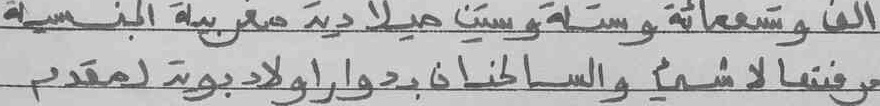 الف وتسعمائة وستة وستين ميلادية مغربية الجنسية
حرفتها لا شيء والساكنان بدوار اولاد بوية لمقدم